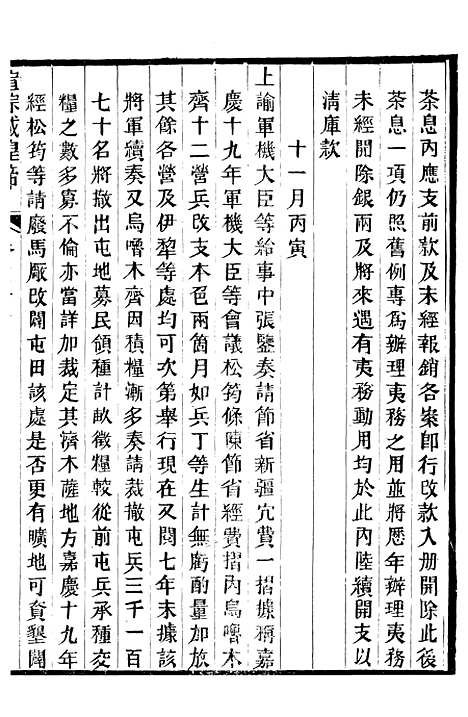 茶息內應支前款及未經報銷各案卽行改款入册開除此後
茶息一項仍照舊例專爲辦理夷務之用並將歷年辦理夷務
未經開除銀兩及將來遇有夷務動用均於此內陸續開支以
淸庫款
十一月丙寅
上諭軍機大臣等給事中張鑒奏請節省新疆宂費一摺據稱嘉
慶十九年軍機大臣等會議松筠條陳節省經費摺內烏嚕木
齊十二營兵改支本色兩箇月如兵丁等生計無虧酌量加放
其餘各營及伊犂等處均可次第舉行現在又閱七年未據該
將軍續奏又烏嚕木齊因積糧漸多奏請裁撤屯兵三千一百
七十名將撤出屯地募民領種計畝徵糧較從前屯兵承種交
糧之數多寡不倫亦當詳加裁定其濟木薩地方嘉慶十九年
經松筠等請廢馬厰改闢屯田該處是否更有曠地可資墾闢
宣宗成皇帝